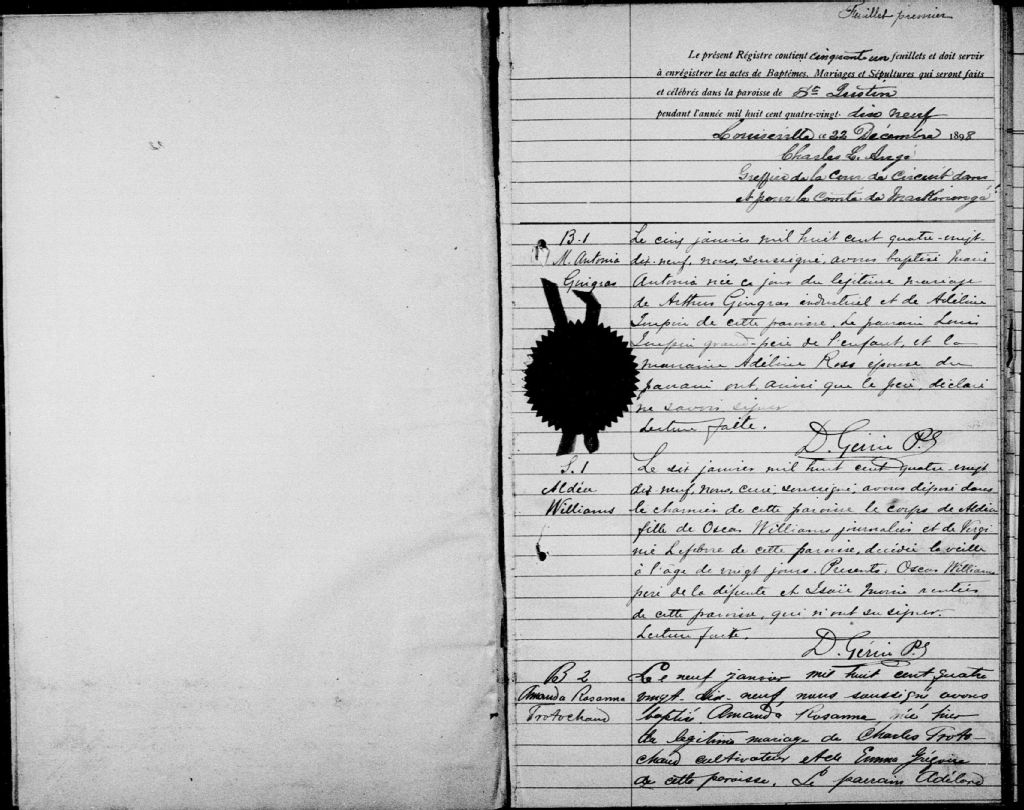 Feuillet premier
Le présent Régistre contient cinquante un feuillets et doit servir
à enrégistrer les actes de Baptêmes, Mariages et Sépultures qui seront faits
et célébrés dans la paroisse de St Justin
pendant l'année mil huit cent quatre-vingt- dix neuf
Louiseville ce 22 Décembre 1898
Charles L.
Greffier de la Cour de Circuit dans
et pour le Comté de Maskinongé
B. 1
M. Antonia
Gingras
Le cinq janvier mil huit cent quatre-vingt-
dix-neuf, nous, soussigné, avons baptisé Marie
Antonia née ce jour du légitime mariage
de Arthur Gingras industriel et de Adéline
de cette paroisse. Le parrain Louis
grand-père de l'enfant, et la
marraine Adéline Ross épouse du
parrain ont, ainsi que le père, déclaré
ne savoir signer
Lecture faite.
D. Gérin P.
S. 1
Aldéa
Williams
Le six janvier mil huit cent quatre-vingt
dix neuf, nous, curé, soussigné, avons déposé dans
le charnier de cette paroisse le corps de Aldéa
fille de Oscar Williams journalier et de Virgi
nie Lefebvre de cette paroisse, décédée la veille
à l'âge de vingt jours. Présents, Oscar Williams
père de la défunte et Isaïe Morin rentier
de cette paroisse, qui n'ont su signer.
Lecture faite.
D. Gérin P.
B 2
Amanda Rosanna
Trotochaud
Le neuf janvier mil huit cent quatre
vingt-dix-neuf nous soussigné avons
baptisé Amanda Rosanna, née hier
de légitime mariage de Charles Troto-
chaud cultivateur et de Emma Grégoire
de cette paroisse. Le parrain Adélard